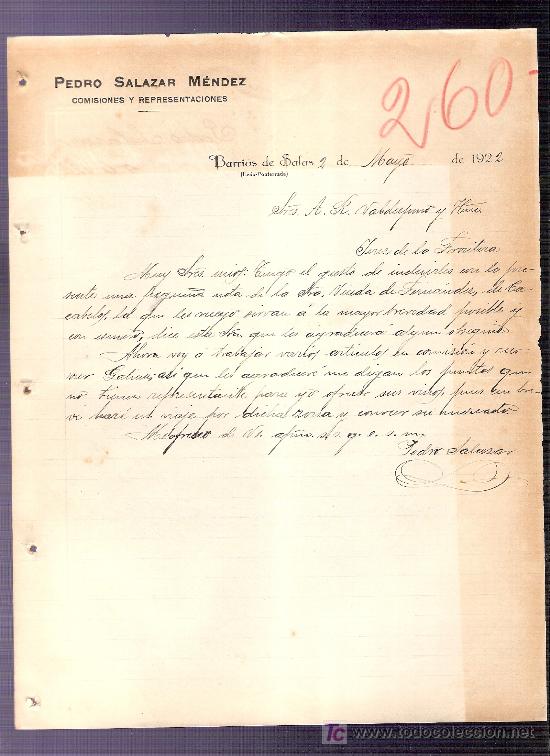 PEDRO SALAZAR MÉNDEZ
COMISIONES Y REPRESENTACIONES
260-
Barrios de Salas 2 de Mayo de 1922
(León-Ponferrada)
Sres. A. R. Valdespino y Hno
Jerez de la Frontera
Muy Sres mios: Tengo el gusto de incluirles con la pre-
sente una pequeña nota de la Sra. Viuda de Fernández, de Ca-
cabelos, la que les ruego sirvan á la mayor brevedad posible y
con esmero, dice esta Sra. que les agradecerá algun obsequio.
Ahora voy a trabajar varios articulos en comisión y
Galicia, asi que les agradeceré me digan los puntos que
no tienen representante para yo ofrecer sus vinos, pues en bre-
ve haré un viaje por dicha zona y conocer su mercado.
Me ofrezco de Vs. afmo. s. s. q. e. s. m.
Pedro Salazar
tc www.todocoleccion.net